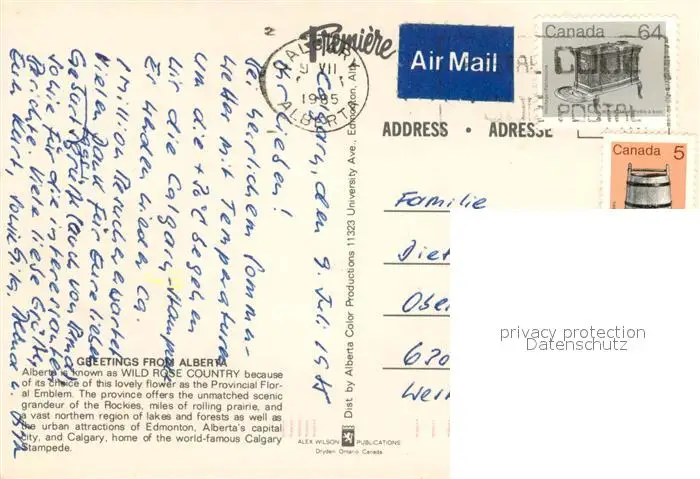 Première
Air Mail
Canada 64
Canada 5
CALGARY
9 VII
1985
ALBERTA
POSTAL
ADDRESS • ADRESSE
Familie
Diet
Ober
620
Wei
privacy protection
Datenschutz
Calgary, den 9. Juli 1985
Ihr Lieben!
Bei herrlichem Sommer-
wetter mit Temperaturen
um die +30° begehen
wir die Calgary-Stampede
Es werden wieder ca.
1 million Besucher erwartet.
Vielen Dank für Eure lieben
sowie für die interessanten
Berichte. Viele liebe Grüße,
Dist by Alberta Color Productions 11323 University Ave., Edmonton, Alta.
GREETINGS FROM ALBERTA
Alberta is known as WILD ROSE COUNTRY because
of its choice of this lovely flower as the Provincial Flor-
al Emblem. The province offers the unmatched scenic
grandeur of the Rockies, miles of rolling prairie, and
a vast northern region of lakes and forests as well as
the urban attractions of Edmonton, Alberta's capital
city, and Calgary, home of the world-famous Calgary
Stampede.
ALEX WILSON PUBLICATIONS
Dryden Ontario Canada